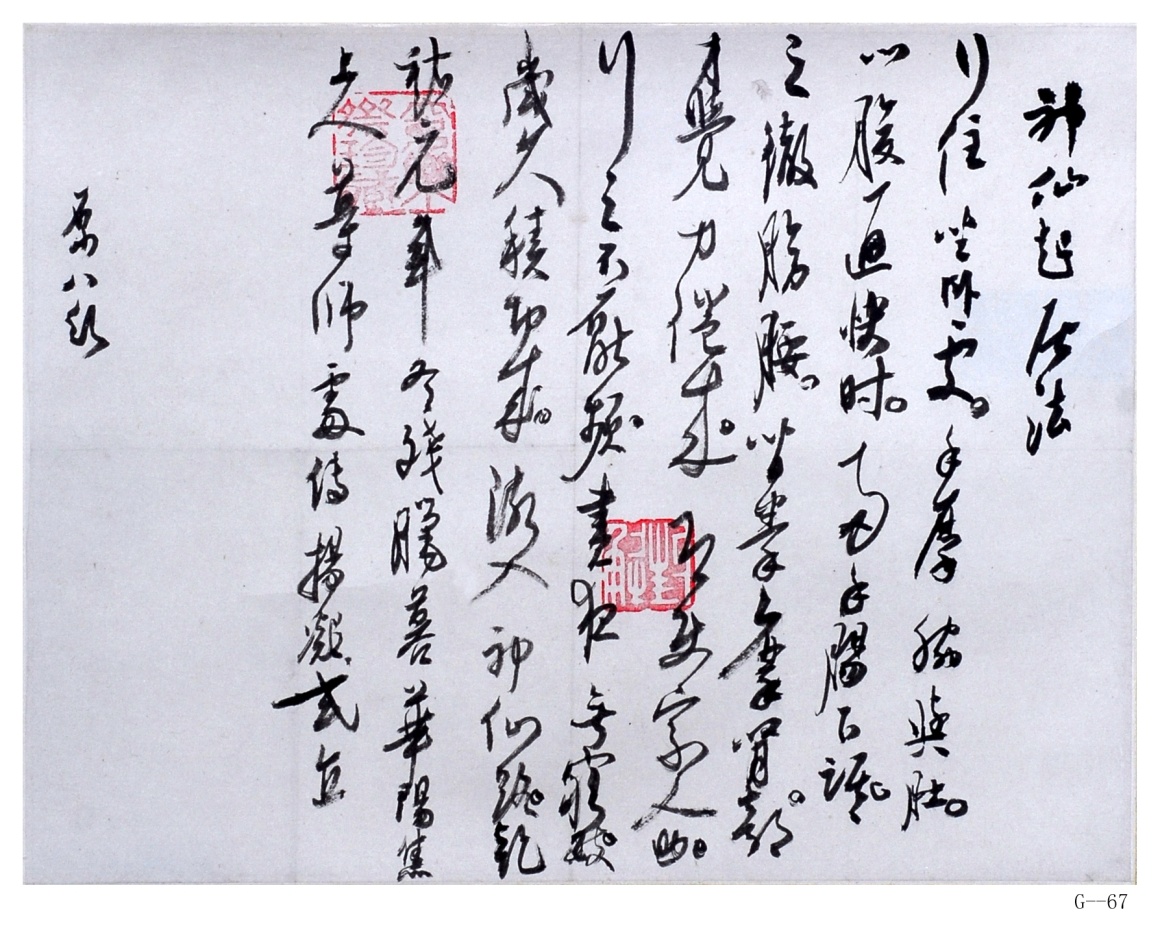 神仙起居法
行住坐卧處。手摩脇與肚。
心腹通快時。兩手腸下踞
之徹膀腰。背拳摩腎部。
才覺力倦來。即使家人助。
行之不厭頻。晝夜無窮數。
歲久積功成。漸入神仙路。乾
祐元年冬殘臘暮華陽焦
上人尊師處傳楊凝式
G--67